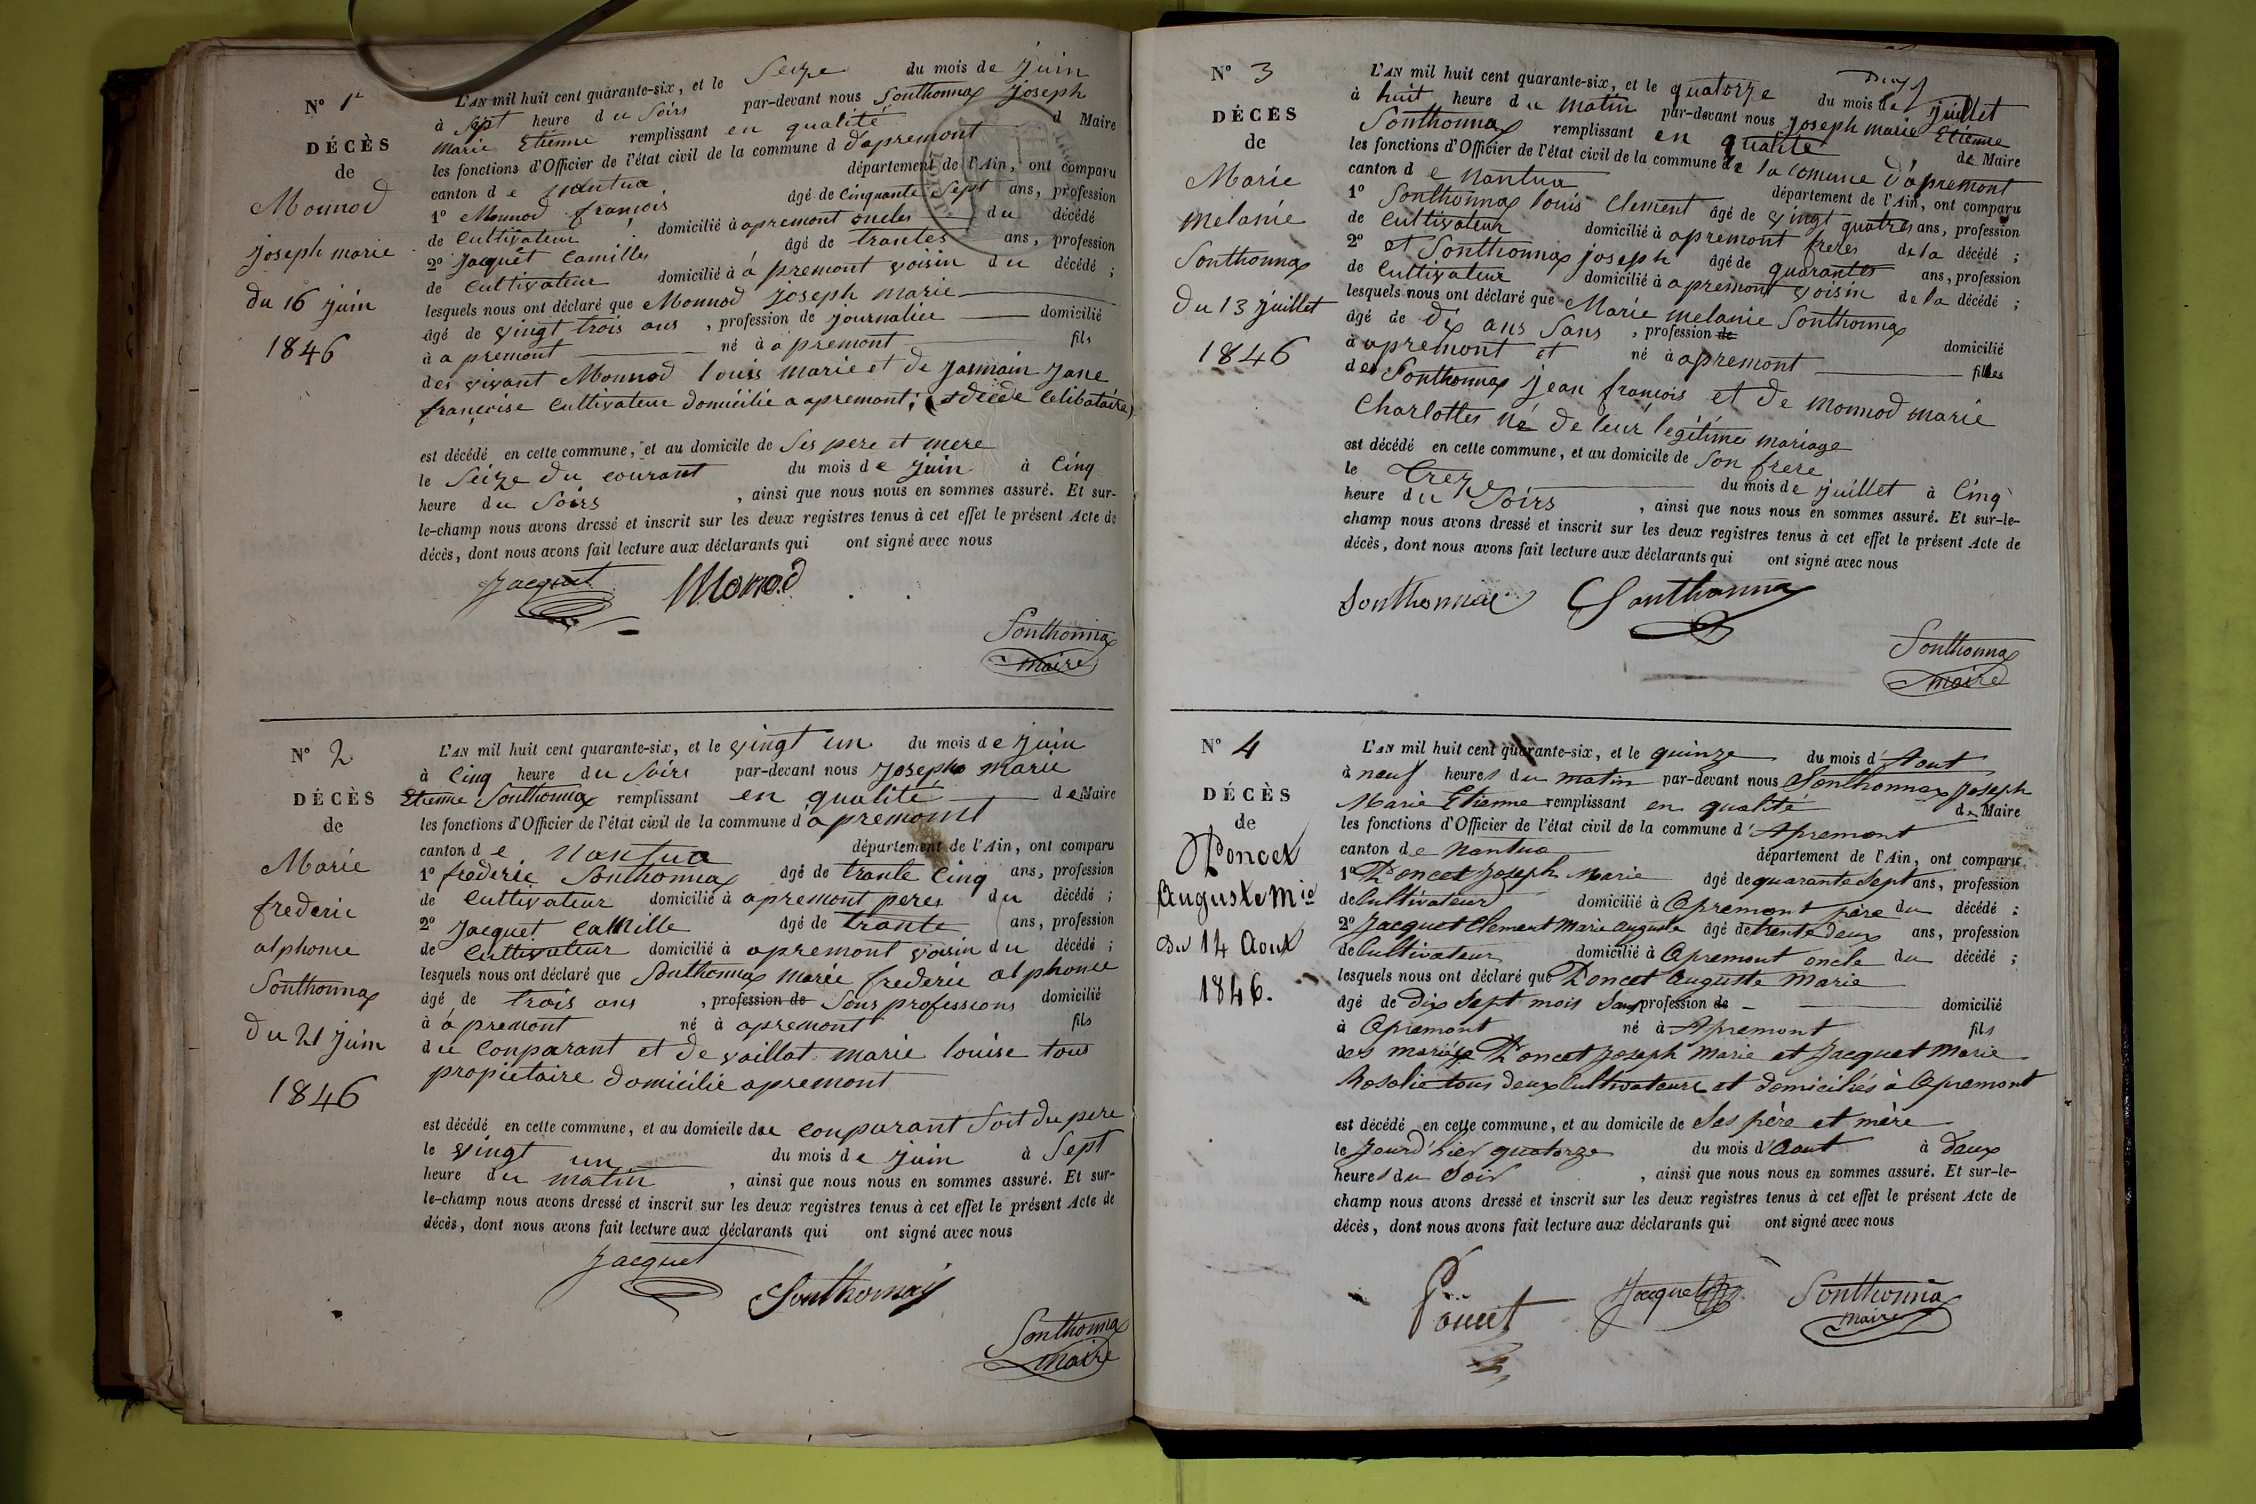 N° 1er
DÉCÈS
de
Monnod
joseph marie
du 16 juin
1846
L'AN mil huit cent quarante-six, et le Seize du mois de juin
à Sept heure du Soirs par-devant nous Sonthonnax joseph
marie Etienne remplissant en qualité d Maire
les fonctions d'Officier de l'état civil de la commune d d'apremont
canton de nantua département de l'Ain, ont comparu
1° Monnod françois âgé de Cinquante Sept ans, profession
de Cultivateur domicilié à apremont oncles du décédé
2° Jacquet Camilles âgé de trantes ans, profession
de Cultivateur domicilié à à premont voisin du décédé ;
lesquels nous ont déclaré que Monnod joseph marie
âgé de vingt trois ans , profession de journalier domicilié
à a premont né à a premont fils
des vivant Monnod louis marie et de Jarmain Jane
françoise Cultivateur domicilié a apremont; (et décédé Celibataire)
est décédé en cette commune, et au domicile de Ses pere et mere
le Seize du courant du mois de juin à Cinq
heure du Soirs , ainsi que nous nous en sommes assuré. Et sur-
le-champ nous avons dressé et inscrit sur les deux registres tenus à cet effet le présent Acte de
décès, dont nous avons fait lecture aux déclarants qui ont signé avec nous
Jacquet Monnod
Sonthonnax
maire
N° 2
DÉCÈS
de
Marie
frederic
alphonse
Sonthonnax
du 21 juin
1846
L'AN mil huit cent quarante-six, et le vingt un du mois de juin
à Cinq heure du Soirs par-devant nous Joseph marie
Etienne Sonthonnax remplissant en qualité de Maire
les fonctions d'Officier de l'état civil de la commune d'apremont
canton de nantua département de l'Ain, ont comparu
1° frederic Sonthonnax âgé de trante Cinq ans, profession
de Cultivateur domicilié à apremont peres du décédé ;
2° Jacquet Camille âgé de trante ans, profession
de Cultivateur domicilié à apremont voisin du décédé ;
lesquels nous ont déclaré que Sonthonnax marie frederic alphonse
âgé de trois ans , profession de Sans professions domicilié
à à premont né à apremont fils
du Conparant et de vaillat marie louise tous
propietaire domicilié apremont
est décédé en cette commune, et au domicile due conparant Soit du pere
le vingt un du mois de juin à Sept
heure du matin , ainsi que nous nous en sommes assuré. Et sur-
le-champ nous avons dressé et inscrit sur les deux registres tenus à cet effet le présent Acte de
décès, dont nous avons fait lecture aux déclarants qui ont signé avec nous
Jacquet Sonthonnax
Sonthonnax
maire
N° 3
DÉCÈS
de
Marie
melanie
Sonthonnax
du 13 juillet
1846
L'AN mil huit cent quarante-six, et le quatorze du mois de juillet
à huit heure du matin par-devant nous joseph marie Etienne
Sonthonnax remplissant en qualité de Maire
les fonctions d'Officier de l'état civil de la commune de la comune d'apremont
canton de nantua département de l'Ain, ont comparu
1° Sonthonnax louis Clement âgé de vingt quatres ans, profession
de Cultivateur domicilié à apremont freres de la décédé ;
2° et Sonthonnax joseph âgé de quarantes ans, profession
de Cultivateur domicilié à apremont voisin de la décédé ;
lesquels nous ont déclaré que Marie melanie Sonthonnax
âgé de dix ans Sans , profession de domicilié
à apremont et né à apremont filles
des Sonthonnax jean françois et de monnod marie
Charlottes né de leur legitime mariage
est décédé en cette commune, et au domicile de Son frere
le treze du mois de juillet à Cinq
heure du Soirs , ainsi que nous nous en sommes assuré. Et sur-le-
champ nous avons dressé et inscrit sur les deux registres tenus à cet effet le présent Acte de
décès, dont nous avons fait lecture aux déclarants qui ont signé avec nous
Sonthonnax Sonthonnax
Sonthonnax
maire
N° 4
DÉCÈS
de
Poncet
Auguste Mie
du 14 Aout
1846.
L'AN mil huit cent quarante-six, et le quinze du mois d'Aout
à neuf heures du matin par-devant nous Sonthonnax Joseph
Marie Etienne remplissant en qualité de Maire
les fonctions d'Officier de l'état civil de la commune d'Apremont
canton de Nantua département de l'Ain, ont comparu
1° Poncet Joseph Marie âgé de quarante Sept ans, profession
de Cultivateur domicilié à Apremont père du décédé ;
2° Jacquet Clement Marie Auguste âgé de trente deux ans, profession
de Cultivateur domicilié à Apremont oncle du décédé ;
lesquels nous ont déclaré que Poncet Auguste Marie
âgé de dix Sept mois Sans profession de domicilié
à Apremont né à Apremont fils
des mariés Poncet Joseph Marie et Jacquet Marie
Rosalie tous deux Cultivateurs et domiciliés à Apremont
est décédé en cette commune, et au domicile de Ses père et mère
le Jourd'hier quatorze du mois d'Aout à deux
heures du Soir , ainsi que nous nous en sommes assuré. Et sur-le-
champ nous avons dressé et inscrit sur les deux registres tenus à cet effet le présent Acte de
décès, dont nous avons fait lecture aux déclarants qui ont signé avec nous
Poncet Jacquet Sonthonnax
maire